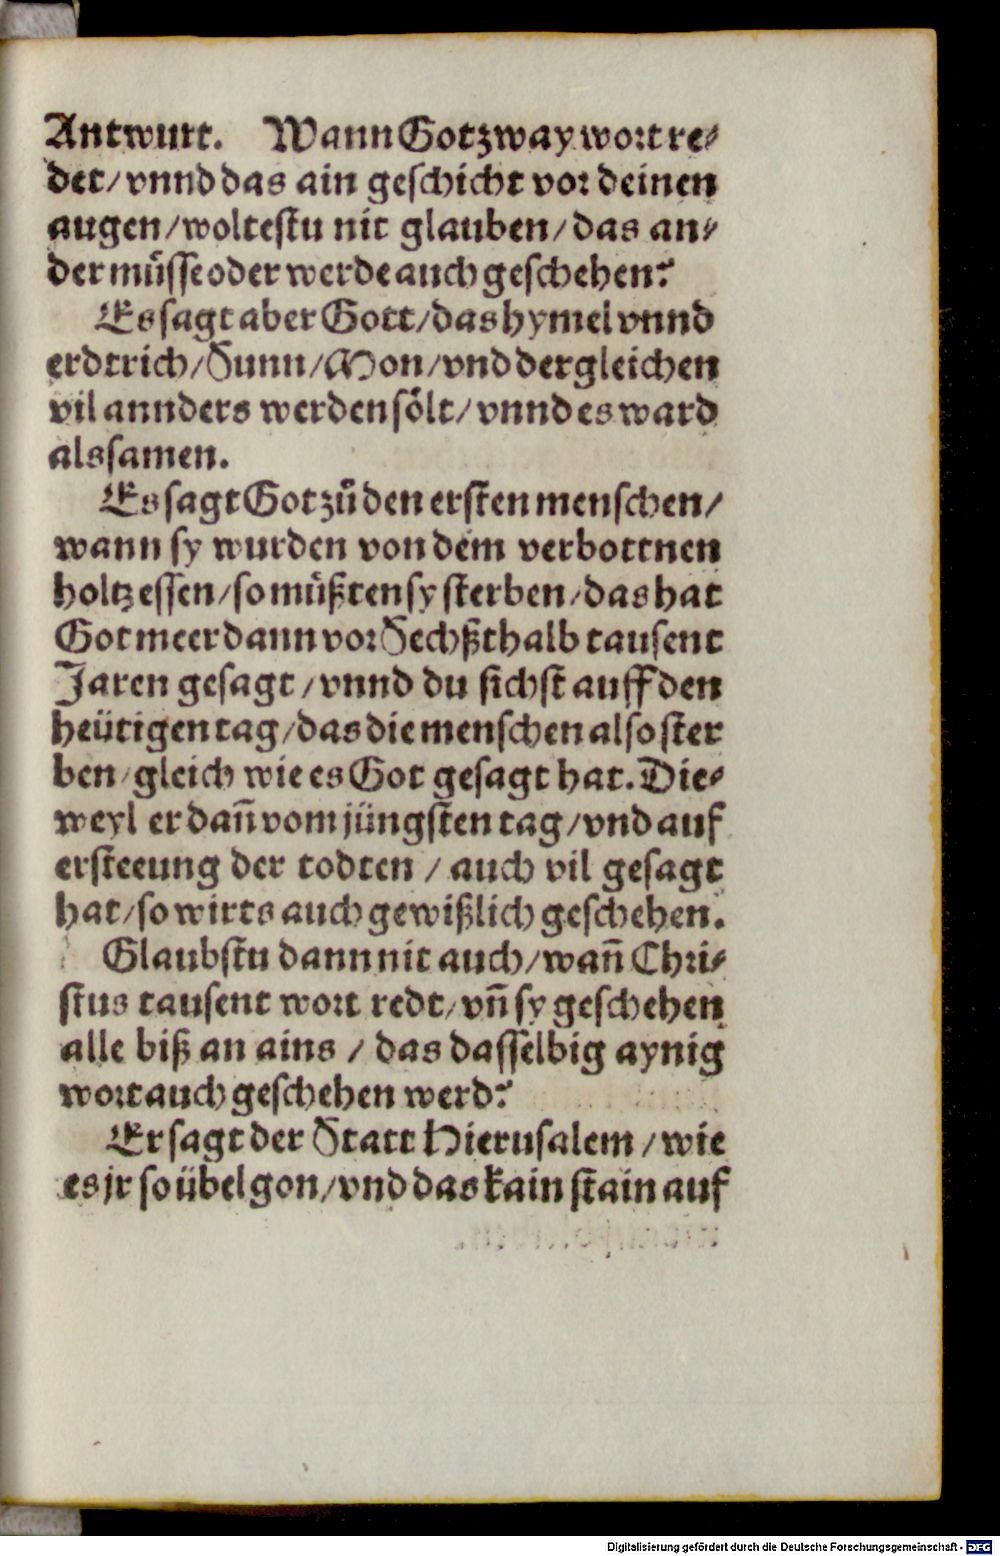 Antwurt. Wann Got zway wort re⸗
det / vnnd das ain geschicht vor deinen
augen / woltestu nit glauben / das an⸗
der müsse oder werde auch geschehen?
Es sagt aber Gott / das hymel vnnd
erdtrich / Sunn / Mon / vnd dergleichen
vil annders werden sölt / vnnd es ward
als samen.
Es sagt Got zů den ersten menschen /
wann sy wurden von dem verbottnen
holtz essen / so müßten sy sterben / das hat
Got meer dann vor Sechßthalb tausent
Jaren gesagt / vnnd du sichst auff den
heütigen tag / das die menschen also ster
ben / gleich wie es Got gesagt hat. Die⸗
weyl er dañ vom jüngsten tag / vnd auf
ersteeung der todten / auch vil gesagt
hat / so wirts auch gewißlich geschehen.
Glaubstu dann nit auch / wañ Chri⸗
stus tausent wort redt / vñ sy geschehen
alle biß an ains / das dasselbig aynig
wort auch geschehen werd?
Er sagt der Statt Hierusalem / wie
es jr so übel gon / vnd das kain stain auf
Digitalisierung gefördert durch die Deutsche Forschungsgemeinschaft - DFG